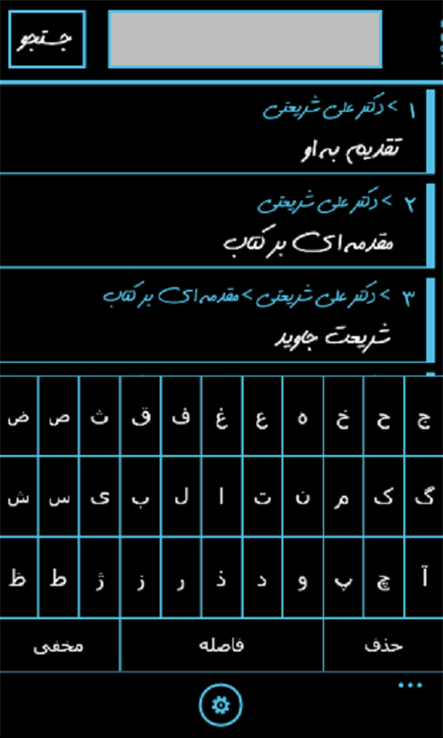 جستجو
۱ >دکتر علی شریعتی
تقدیم به او
۲ >دکتر علی شریعتی
مقدمه ای بر کتاب
۳ >دکتر علی شریعتی>مقدمه ای بر کتاب
شریعت جاوید
ج ح خ ه ع غ ف ق ث ص ض
گ ک م ن ت ا ل ب ی س ش
آ چ پ و د ذ ر ز ژ ط ظ
حذف فاصله مخفی